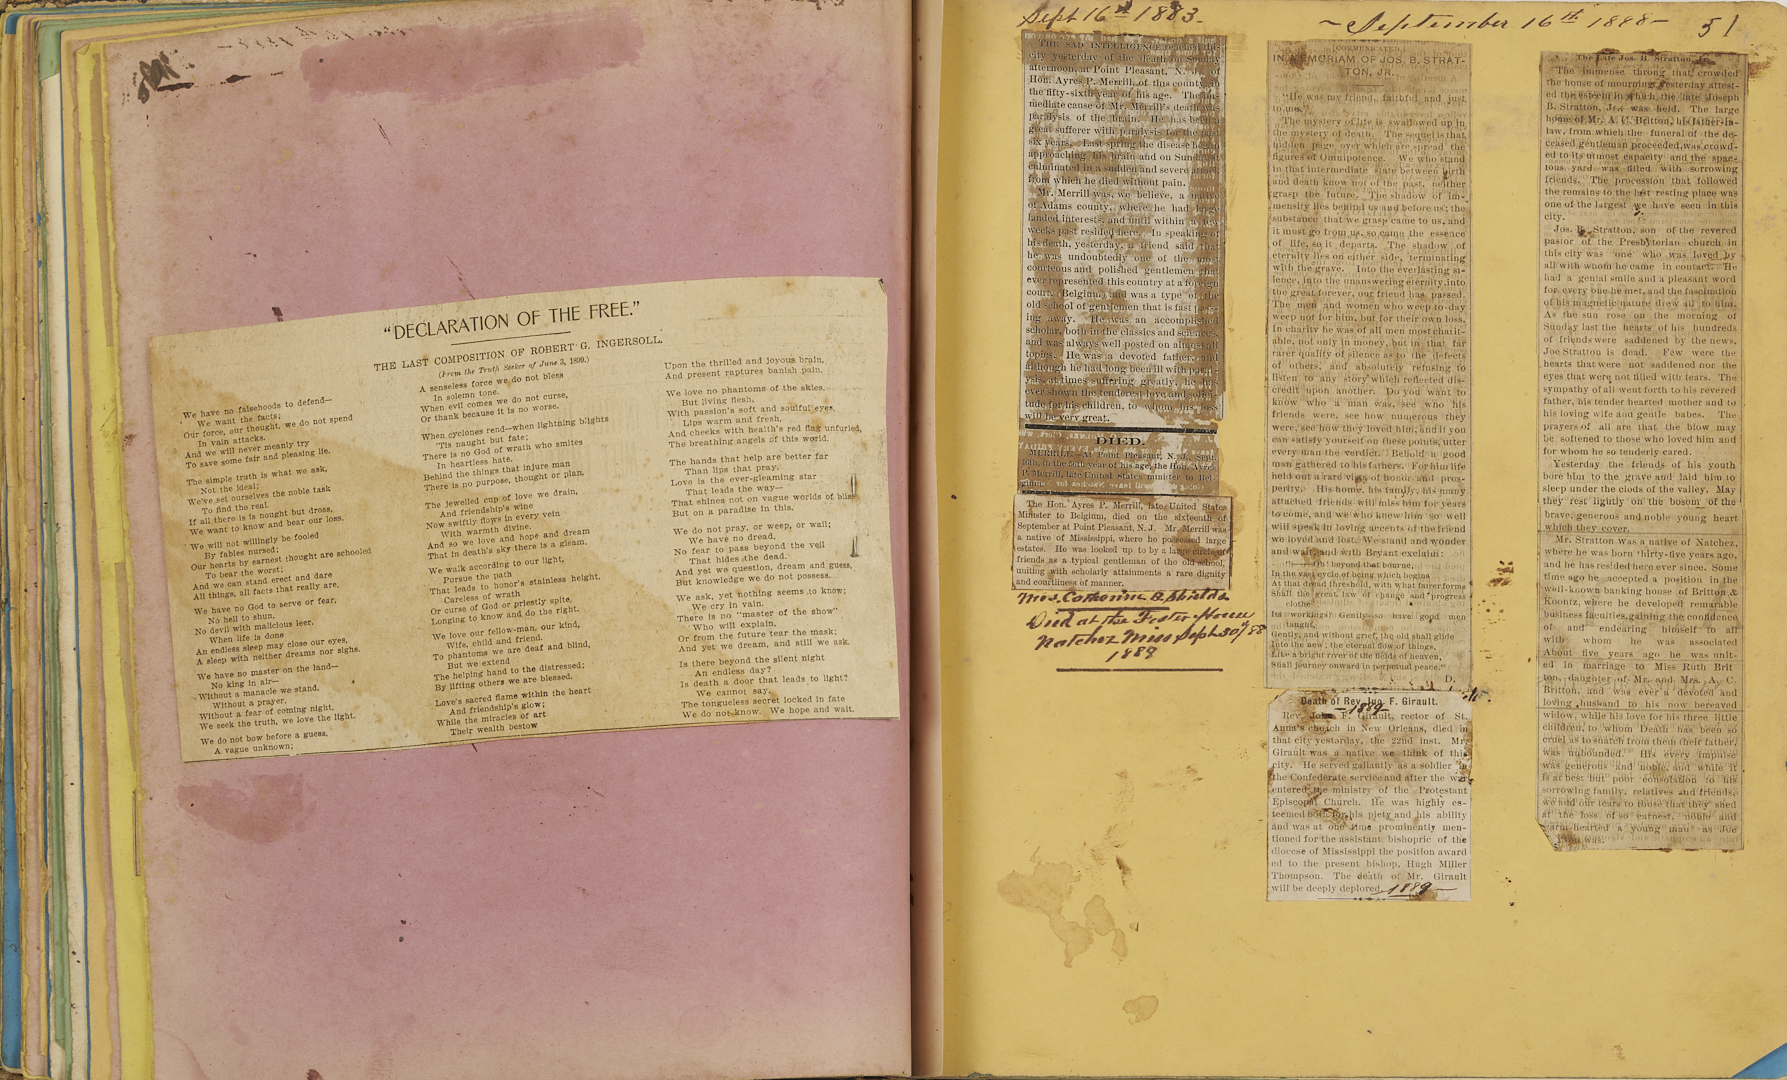 "DECLARATION OF THE FREE."
THE LAST COMPOSITION OF ROBERT G. INGERSOLL.
(From the Truth Seeker of June 3, 1899.)
We have no falsehoods to defend—
We want the facts;
Our force, our thought, we do not spend
In vain attacks.
And we will never meanly try
To save some fair and pleasing lie.
The simple truth is what we ask,
Not the ideal;
We've set ourselves the noble task
To find the real.
If all there is is nought but dross,
We want to know and bear our loss.
We will not willingly be fooled
By fables nursed;
Our hearts by earnest thought are schooled
To bear the worst;
And we can stand erect and dare
All things, all facts that really are.
We have no God to serve or fear,
No hell to shun,
No devil with malicious leer,
When life is done
An endless sleep may close our eyes,
A sleep with neither dreams nor sighs.
We have no master on the land—
No king in air—
Without a manacle we stand,
Without a prayer,
Without a fear of coming night,
We seek the truth, we love the light.
We do not bow before a guess,
A vague unknown;
A senseless force we do not bless
In solemn tone.
When evil comes we do not curse,
Or thank because it is no worse.
When cyclones rend—when lightning blights
'Tis naught but fate;
There is no God of wrath who smites
In heartless hate.
Behind the things that injure man
There is no purpose, thought or plan.
The jewelled cup of love we drain,
And friendship's wine
Now swiftly flows in every vein
With warmth divine.
And so we love and hope and dream
That in death's sky there is a gleam.
We walk according to our light,
Pursue the path
That leads to honor's stainless height,
Careless of wrath
Or curse of God or priestly spite,
Longing to know and do the right.
We love our fellow-man, our kind,
Wife, child and friend.
To phantoms we are deaf and blind,
But we extend
The helping hand to the distressed;
By lifting others we are blessed.
Love's sacred flame within the heart
And friendship's glow;
While the miracles of art
Their wealth bestow
Upon the thrilled and joyous brain,
And present raptures banish pain.
We love no phantoms of the skies,
But living flesh,
With passion's soft and soulful eyes,
Lips warm and fresh,
And cheeks with health's red flag unfurled,
The breathing angels of this world.
The hands that help are better far
Than lips that pray.
Love is the ever-gleaming star
That leads the way—
That shines not on vague worlds of bliss
But on a paradise in this.
We do not pray, or weep, or wail;
We have no dread,
No fear to pass beyond the veil
That hides the dead.
And yet we question, dream and guess,
But knowledge we do not possess.
We ask, yet nothing seems to know;
We cry in vain.
There is no "master of the show"
Who will explain,
Or from the future tear the mask;
And yet we dream, and still we ask.
Is there beyond the silent night
An endless day?
Is death a door that leads to light?
We cannot say.
The tongueless secret locked in fate
We do not know. We hope and wait.
Sept 16th 1883.
THE SAD INTELLIGENCE reached the
city yesterday of the death on Sunday
afternoon, at Point Pleasant, N. J., of
Hon. Ayres P. Merrill, of this county, in
the fifty-sixth year of his age. The im-
mediate cause of Mr. Merrill's death was
paralysis of the brain. He has been a
great sufferer with paralysis for the past
six years. Last spring the disease began
approaching his brain and on Sunday
culminated in a sudden and severe attack
from which he died without pain.
Mr. Merrill was, we believe, a native
of Adams county, where he had large
landed interests, and until within a few
weeks past resided here. In speaking of
his death, yesterday, a friend said that
he was undoubtedly one of the most
courteous and polished gentlemen that
ever represented this country at a foreign
court, (Belgium,) and was a type of the
old school of gentlemen that is fast pass-
ing away. He was an accomplished
scholar, both in the classics and sciences,
and was always well posted on almost all
topics. He was a devoted father, and
although he had long been ill with paral-
ysis, at times suffering greatly, he has
ever shown the tenderest love and solici-
tude for his children, to whom his loss
will be very great.
DIED.
MERRILL.—At Point Pleasant, N. J., Sept.
16th, in the 56th year of his age, the Hon. Ayres
P. Merrill, late United States minister to Bel-
gium.
The Hon. Ayres P. Merrill, late United States
Minister to Belgium, died on the sixteenth of
September at Point Pleasant, N. J. Mr. Merrill was
a native of Mississippi, where he possessed large
estates. He was looked up to by a large circle of
friends as a typical gentleman of the old school,
uniting with scholarly attainments a rare dignity
and courtliness of manner.
Mrs. Catharine B. Shields
Died at the Foster House
Natchez Miss Sept 30/88
1888
~ September 16th 1888 —
51
[COMMUNICATED.]
IN MEMORIAM OF JOS. B. STRAT-
TON, JR.
"He was my friend, faithful and just
to me."
The mystery of life is swallowed up in
the mystery of death. The sequel is that
hidden page over which are spread the
figures of Omnipotence. We who stand
in that intermediate state between birth
and death know not of the past, neither
grasp the future. The shadow of im-
mensity lies behind us and before us; the
substance that we grasp came to us, and
it must go from us, so came the essence
of life, so it departs. The shadow of
eternity lies on either side, terminating
with the grave. Into the everlasting si-
lence, into the unanswering eternity, into
the great forever, our friend has passed.
The men and women who weep to-day
weep not for him, but for their own loss.
In charity he was of all men most charit-
able, not only in money, but in that far
rarer quality of silence as to the defects
of others, and absolutely refusing to
listen to any story which reflected dis-
credit upon another. Do you want to
know who a man was, see who his
friends were, see how numerous they
were, see how they loved him; and if you
can satisfy yourself on these points, utter
every man the verdict: Behold a good
man gathered to his fathers. For him life
held out a rare view of honor and pros-
perity. His home, his family, his many
attached friends will miss him for years
to come, and we who knew him so well
will speak in loving accents of the friend
we loved and lost. We stand and wonder
and wait, and with Bryant exclaim:
"——Oh! beyond that bourne,
In the vast cycle of being which begins
At that dread threshold, with what fairer forms
Shall the great law of change and progress
clothe
Its workings? Gently—so have good men
taught,
Gently, and without grief, the old shall glide
Into the new; the eternal flow of things,
Like a bright river of the fields of heaven,
Shall journey onward in perpetual peace."
D.
Death of Rev. Jno. F. Girault.
—1889—
Rev. John F. Girault, rector of St.
Anna's church in New Orleans, died in
that city yesterday, the 22nd inst. Mr.
Girault was a native we think of this
city. He served gallantly as a soldier in
the Confederate service and after the war
entered the ministry of the Protestant
Episcopal Church. He was highly es-
teemed both for his piety and his ability
and was at one time prominently men-
tioned for the assistant bishopric of the
diocese of Mississippi the position award
ed to the present bishop, Hugh Miller
Thompson. The death of Mr. Girault
will be deeply deplored. 1889—
The Late Jos. B. Stratton, Jr.
The immense throng that crowded
the house of mourning yesterday attest-
ed the esteem in which the late Joseph
B. Stratton, Jr., was held. The large
home of Mr. A. C. Britton, his father-in-
law, from which the funeral of the de-
ceased gentleman proceeded, was crowd-
ed to its utmost capacity and the spac-
ious yard was filled with sorrowing
friends. The procession that followed
the remains to the last resting place was
one of the largest we have seen in this
city.
Jos. B. Stratton, son of the revered
pastor of the Presbyterian church in
this city was one who was loved by
all with whom he came in contact. He
had a genial smile and a pleasant word
for every one he met, and the fascination
of his magnetic nature drew all to him.
As the sun rose on the morning of
Sunday last the hearts of his hundreds
of friends were saddened by the news,
Joe Stratton is dead. Few were the
hearts that were not saddened nor the
eyes that were not filled with tears. The
sympathy of all went forth to his revered
father, his tender hearted mother and to
his loving wife and gentle babes. The
prayers of all are that the blow may
be softened to those who loved him and
for whom he so tenderly cared.
Yesterday the friends of his youth
bore him to the grave and laid him to
sleep under the clods of the valley. May
they rest lightly on the bosom of the
brave, generous and noble young heart
which they cover.
Mr. Stratton was a native of Natchez,
where he was born thirty-five years ago,
and he has resided here ever since. Some
time ago he accepted a position in the
well-known banking house of Britton &
Koontz, where he developed remarable
business faculties, gaining the confidence
of and endearing himself to all
with whom he was associated
About five years ago he was unit-
ed in marriage to Miss Ruth Brit
ton, daughter of Mr. and Mrs. A. C.
Britton, and was ever a devoted and
loving husband to his now bereaved
widow, while his love for his three little
children, to whom Death has been so
cruel as to snatch from them their father,
was unbounded. His every impulse
was generous and noble, and while it
is at best but poor consolation to his
sorrowing family, relatives and friends,
we add our tears to those that they shed
at the loss of so earnest, noble and
warm-hearted a young man as Joe
was.